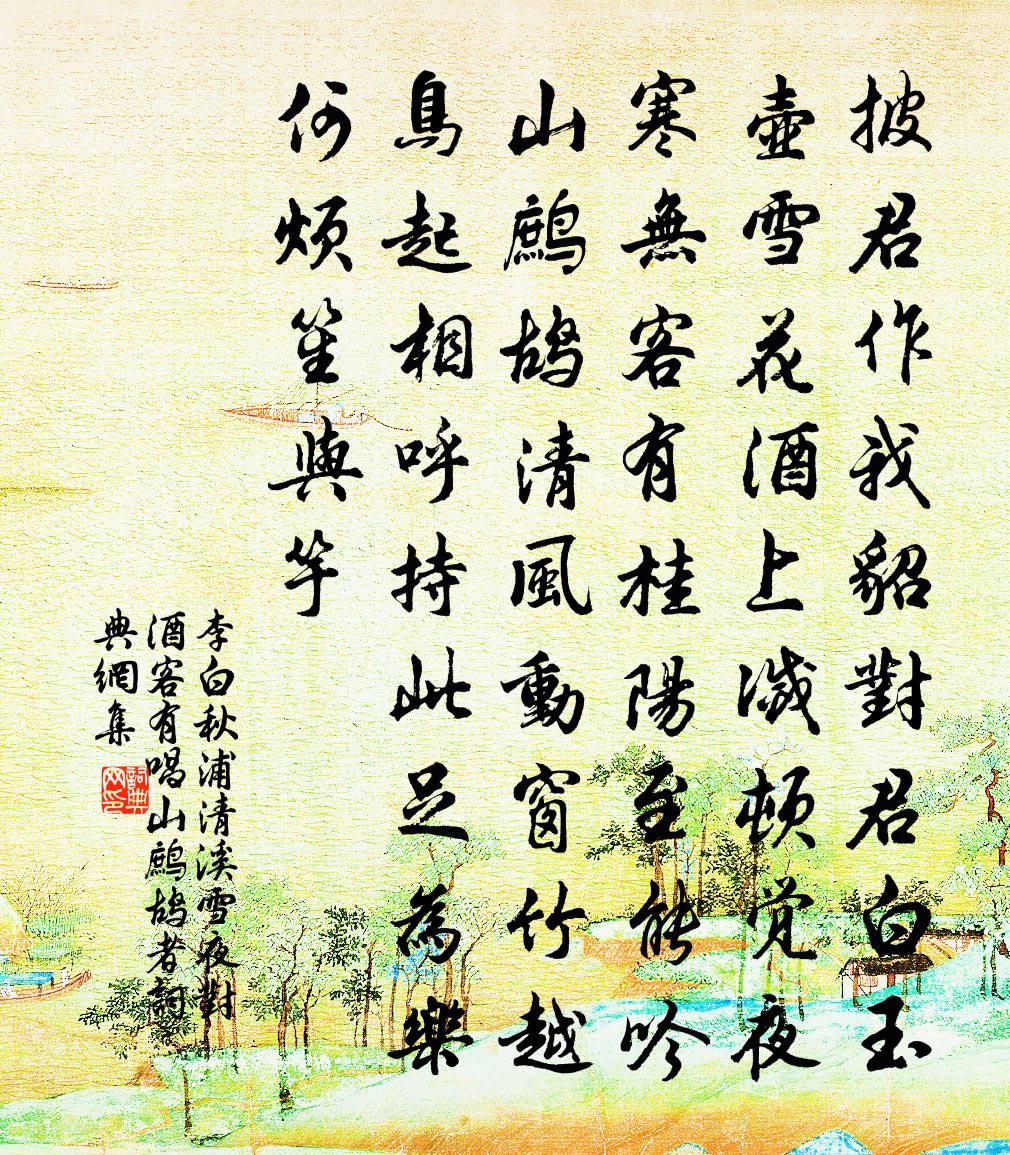 披君作我貂對君白玉
壺雪花酒上滅頓覺夜
寒無客有桂陽至能吟
山鷓鴣清風動窗竹越
鳥起相呼持此足為樂
何煩笙與竽
李白秋浦清溪雪夜對
酒客有唱山鷓鴣者詞
典網集
詞典
网印